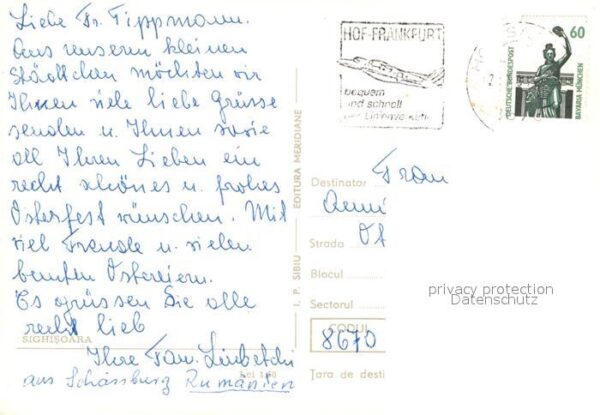 Liebe Fr. Tippmann.
Aus unserm kleinen
Städtchen möchten wir
Ihnen viele liebe Grüsse
senden u. Ihnen sowie
all Ihren Lieben ein
recht schönes u. frohes
Osterfest wünschen. Mit
viel Freude u. vielen
bunten Ostereiern.
Es grüssen Sie alle
recht lieb
SIGHIȘOARA
Ihre Fam.
Lei 1,60
aus Schässburg Rumänien
I. P. SIBIU — EDITURA MERIDIANE
HOF-FRANKFURT
bequem
und schnell
60
DEUTSCHE BUNDESPOST
BAVARIA MÜNCHEN
Destinator
Frau
Strada
Blocul
Sectorul
CODUL
8670
Țara de desti
privacy protection
Datenschutz